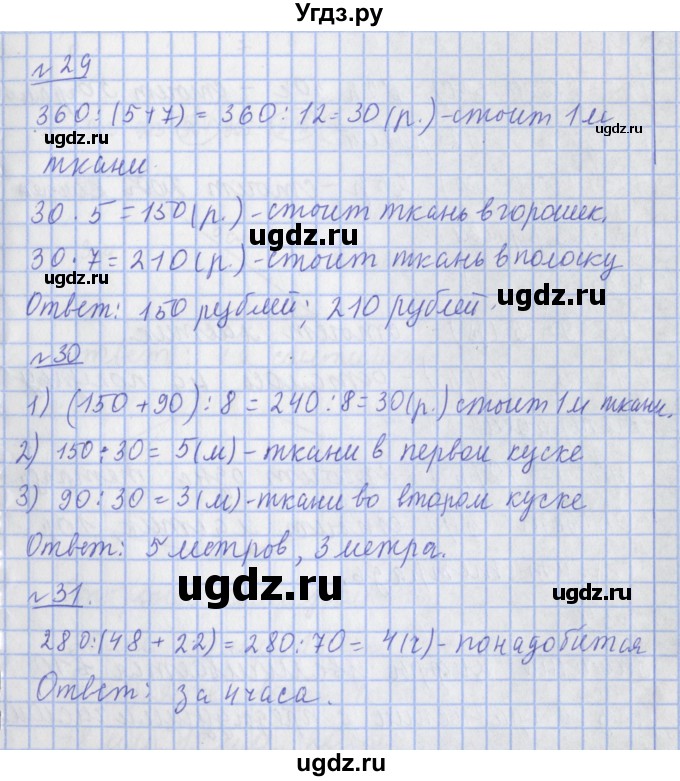 Угдз.ру
№29
360:(5+7) = 360:12=30(р.)-стоит 1м
ugdz.ru ugdz.ru
ткани.
30·5=150(р.)-стоит ткань в горошек.
ugdz.ru
30·7=210(р.)-стоит ткань в полоску
Ответ: 150 рублей; 210 рублей.
ugdz.ru
№30
1) (150+90):8=240:8=30(р.) стоит 1м ткани.
ugdz.ru
2) 150:30=5(м)-ткани в первом куске
3) 90:30=3(м)-ткани во втором куске
ugdz.ru
Ответ: 5 метров, 3 метра.
ugdz.ru
№31.
280:(48+22)=280:70=4(ч)-понадобится
Ответ: за 4 часа.
ugdz.ru ugdz.ru